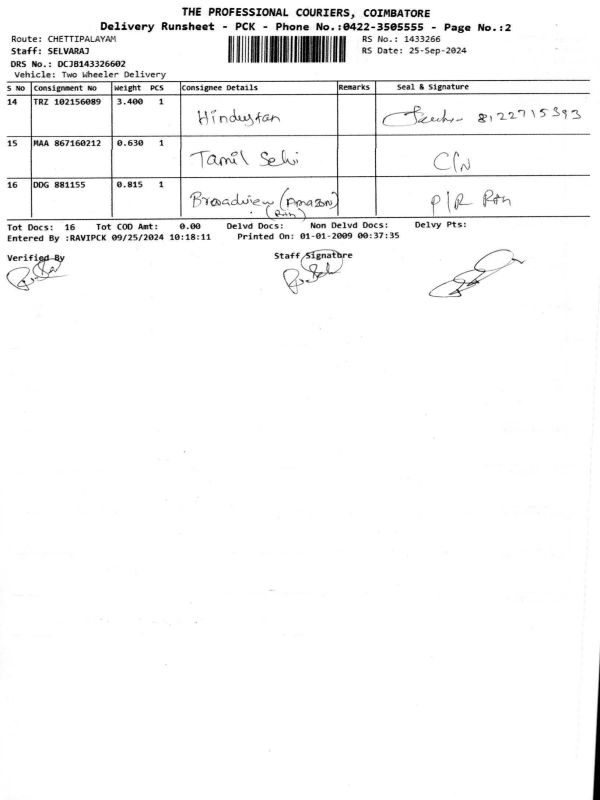 THE PROFESSIONAL COURIERS, COIMBATORE
Delivery Runsheet - PCK - Phone No.:0422-3505555 - Page No.:2
Route: CHETTIPALAYAM RS No.: 1433266
Staff: SELVARAJ RS Date: 25-Sep-2024
DRS No.: DCJB143326602
Vehicle: Two Wheeler Delivery
S No Consignment No Weight PCS Consignee Details Remarks Seal & Signature
14 TRZ 102156089 3.400 1 Hindustan 8122715393
15 MAA 867160212 0.630 1 Tamil Selvi C/N
16 DDG 881155 0.815 1 Broadview (Amazon) P/R Rtn
(Rtn)
Tot Docs: 16 Tot COD Amt: 0.00 Delvd Docs: Non Delvd Docs: Delvy Pts:
Entered By :RAVIPCK 09/25/2024 10:18:11 Printed On: 01-01-2009 00:37:35
Verified By Staff Signature